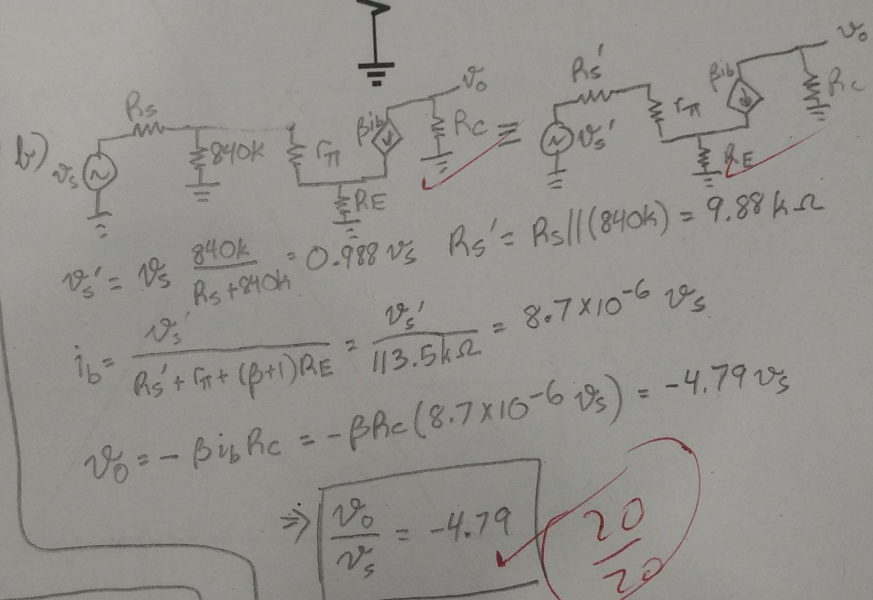 b) vs Rs 840k rπ βib RE Rc vo ≡ vs' Rs' rπ βib RE Rc vo
vs' = vs 840k / (Rs+840k) = 0.988 vs   Rs' = Rs||(840k) = 9.88 kΩ
ib = vs' / (Rs' + rπ + (β+1)RE) = vs' / 113.5kΩ = 8.7x10^-6 vs
vo = -βibRc = -βRc(8.7x10^-6 vs) = -4.79 vs
⇒ vo/vs = -4.79
20/20